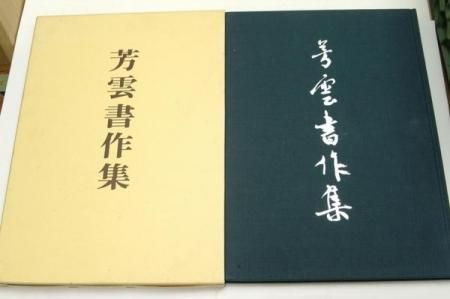 芳雲書作集
芳雲書作集